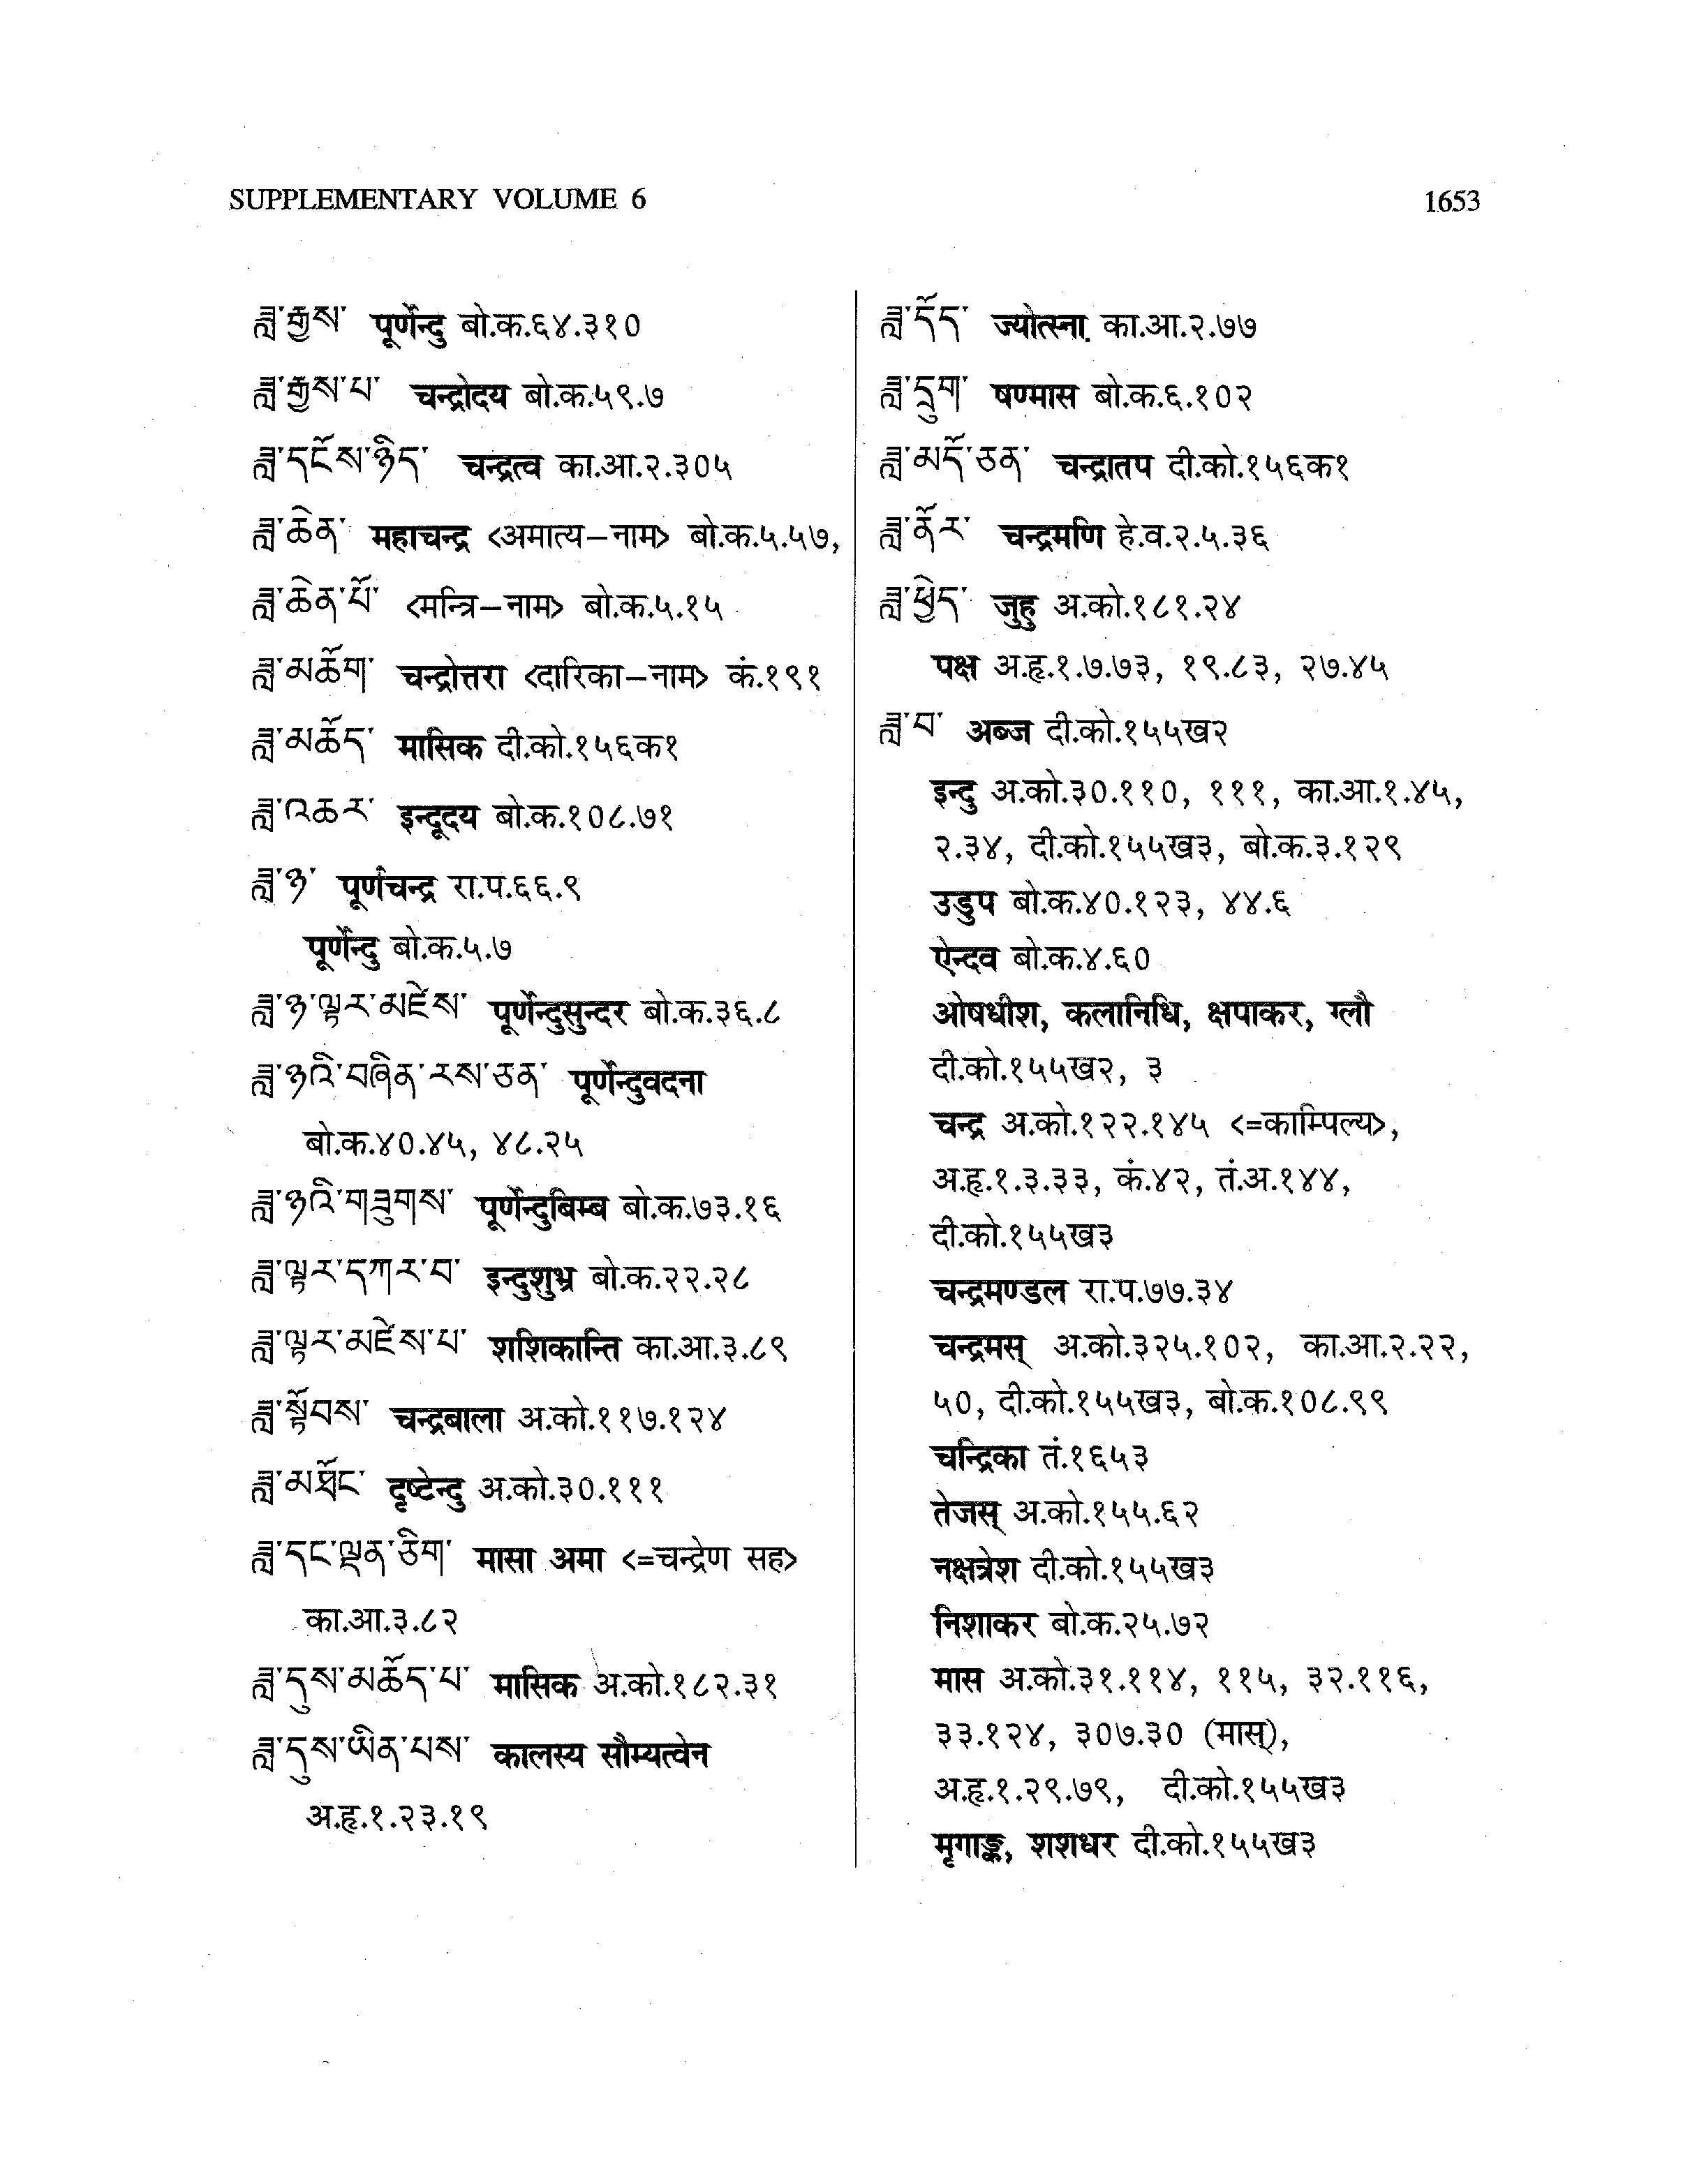 SUPPLEMENTARY VOLUME 6
1653
ཟླ་རྒྱས་ पूर्णेन्दु बो.क.६४.३१०
ཟླ་རྒྱས་པ་ चन्द्रोदय बो.क.५९.७
ཟླ་དངོས་ཉིད་ चन्द्रत्व का.आ.२.३०५
ཟླ་ཆེན་ महाचन्द्र <अमात्य–नाम> बो.क.५.५७,
ཟླ་ཆེན་པོ་ <मन्त्रि–नाम> बो.क.५.१५
ཟླ་མཆོག་ चन्द्रोत्तरा <दारिका–नाम> कं.१९१
ཟླ་མཆོད་ मासिक दी.को.१५६क१
ཟླ་འཆར་ इन्दूदय बो.क.१०८.७१
ཟླ་ཉ་ पूर्णचन्द्र रा.प.६६.९
पूर्णेन्दु बो.क.५.७
ཟླ་ཉ་ལྟར་མཛེས་ पूर्णेन्दुसुन्दर बो.क.३६.८
ཟླ་ཉའི་བཞིན་རས་ཅན་ पूर्णेन्दुवदना
बो.क.४०.४५, ४८.२५
ཟླ་ཉའི་གཟུགས་ पूर्णेन्दुबिम्ब बो.क.७३.१६
ཟླ་ལྟར་དཀར་བ་ इन्दुशुभ्र बो.क.२२.२८
ཟླ་ལྟར་མཛེས་པ་ शशिकान्ति का.आ.३.८९
ཟླ་སྟོབས་ चन्द्रबाला अ.को.११७.१२४
ཟླ་མཐོང་ दृष्टेन्दु अ.को.३०.१११
ཟླ་དང་ལྡན་ཅིག་ मासा अमा <=चन्द्रेण सह>
का.आ.३.८२
ཟླ་དུས་མཆོད་པ་ मासिक अ.को.१८२.३१
ཟླ་དུས་ཡིན་པས་ कालस्य सौम्यत्वेन
अ.हृ.१.२३.१९
ཟླ་དོད་ ज्योत्स्ना का.आ.२.७७
ཟླ་དྲུག་ षण्मास बो.क.६.१०२
ཟླ་མདོ་ཅན་ चन्द्रातप दी.को.१५६क१
ཟླ་ནོར་ चन्द्रमणि हे.व.२.५.३६
ཟླ་ཕྱེད་ जुहु अ.को.१८१.२४
पक्ष अ.हृ.१.७.७३, १९.८३, २७.४५
ཟླ་བ་ अब्ज दी.को.१५५ख२
इन्दु अ.को.३०.११०, १११, का.आ.१.४५,
२.३४, दी.को.१५५ख३, बो.क.३.१२९
उडुप बो.क.४०.१२३, ४४.६
ऐन्दव बो.क.४.६०
ओषधीश, कलानिधि, क्षपाकर, ग्लौ
दी.को.१५५ख२, ३
चन्द्र अ.को.१२२.१४५ <=काम्पिल्य>,
अ.हृ.१.३.३३, कं.४२, तं.अ.१४४,
दी.को.१५५ख३
चन्द्रमण्डल रा.प.७७.३४
चन्द्रमस् अ.को.३२५.१०२, का.आ.२.२२,
५०, दी.को.१५५ख३, बो.क.१०८.९९
चन्द्रिका तं.१६५३
तेजस् अ.को.१५५.६२
नक्षत्रेश दी.को.१५५ख३
निशाकर बो.क.२५.७२
मास अ.को.३१.११४, ११५, ३२.११६,
३३.१२४, ३०७.३० (मास्),
अ.हृ.१.२९.७९, दी.को.१५५ख३
मृगाङ्क, शशधर दी.को.१५५ख३